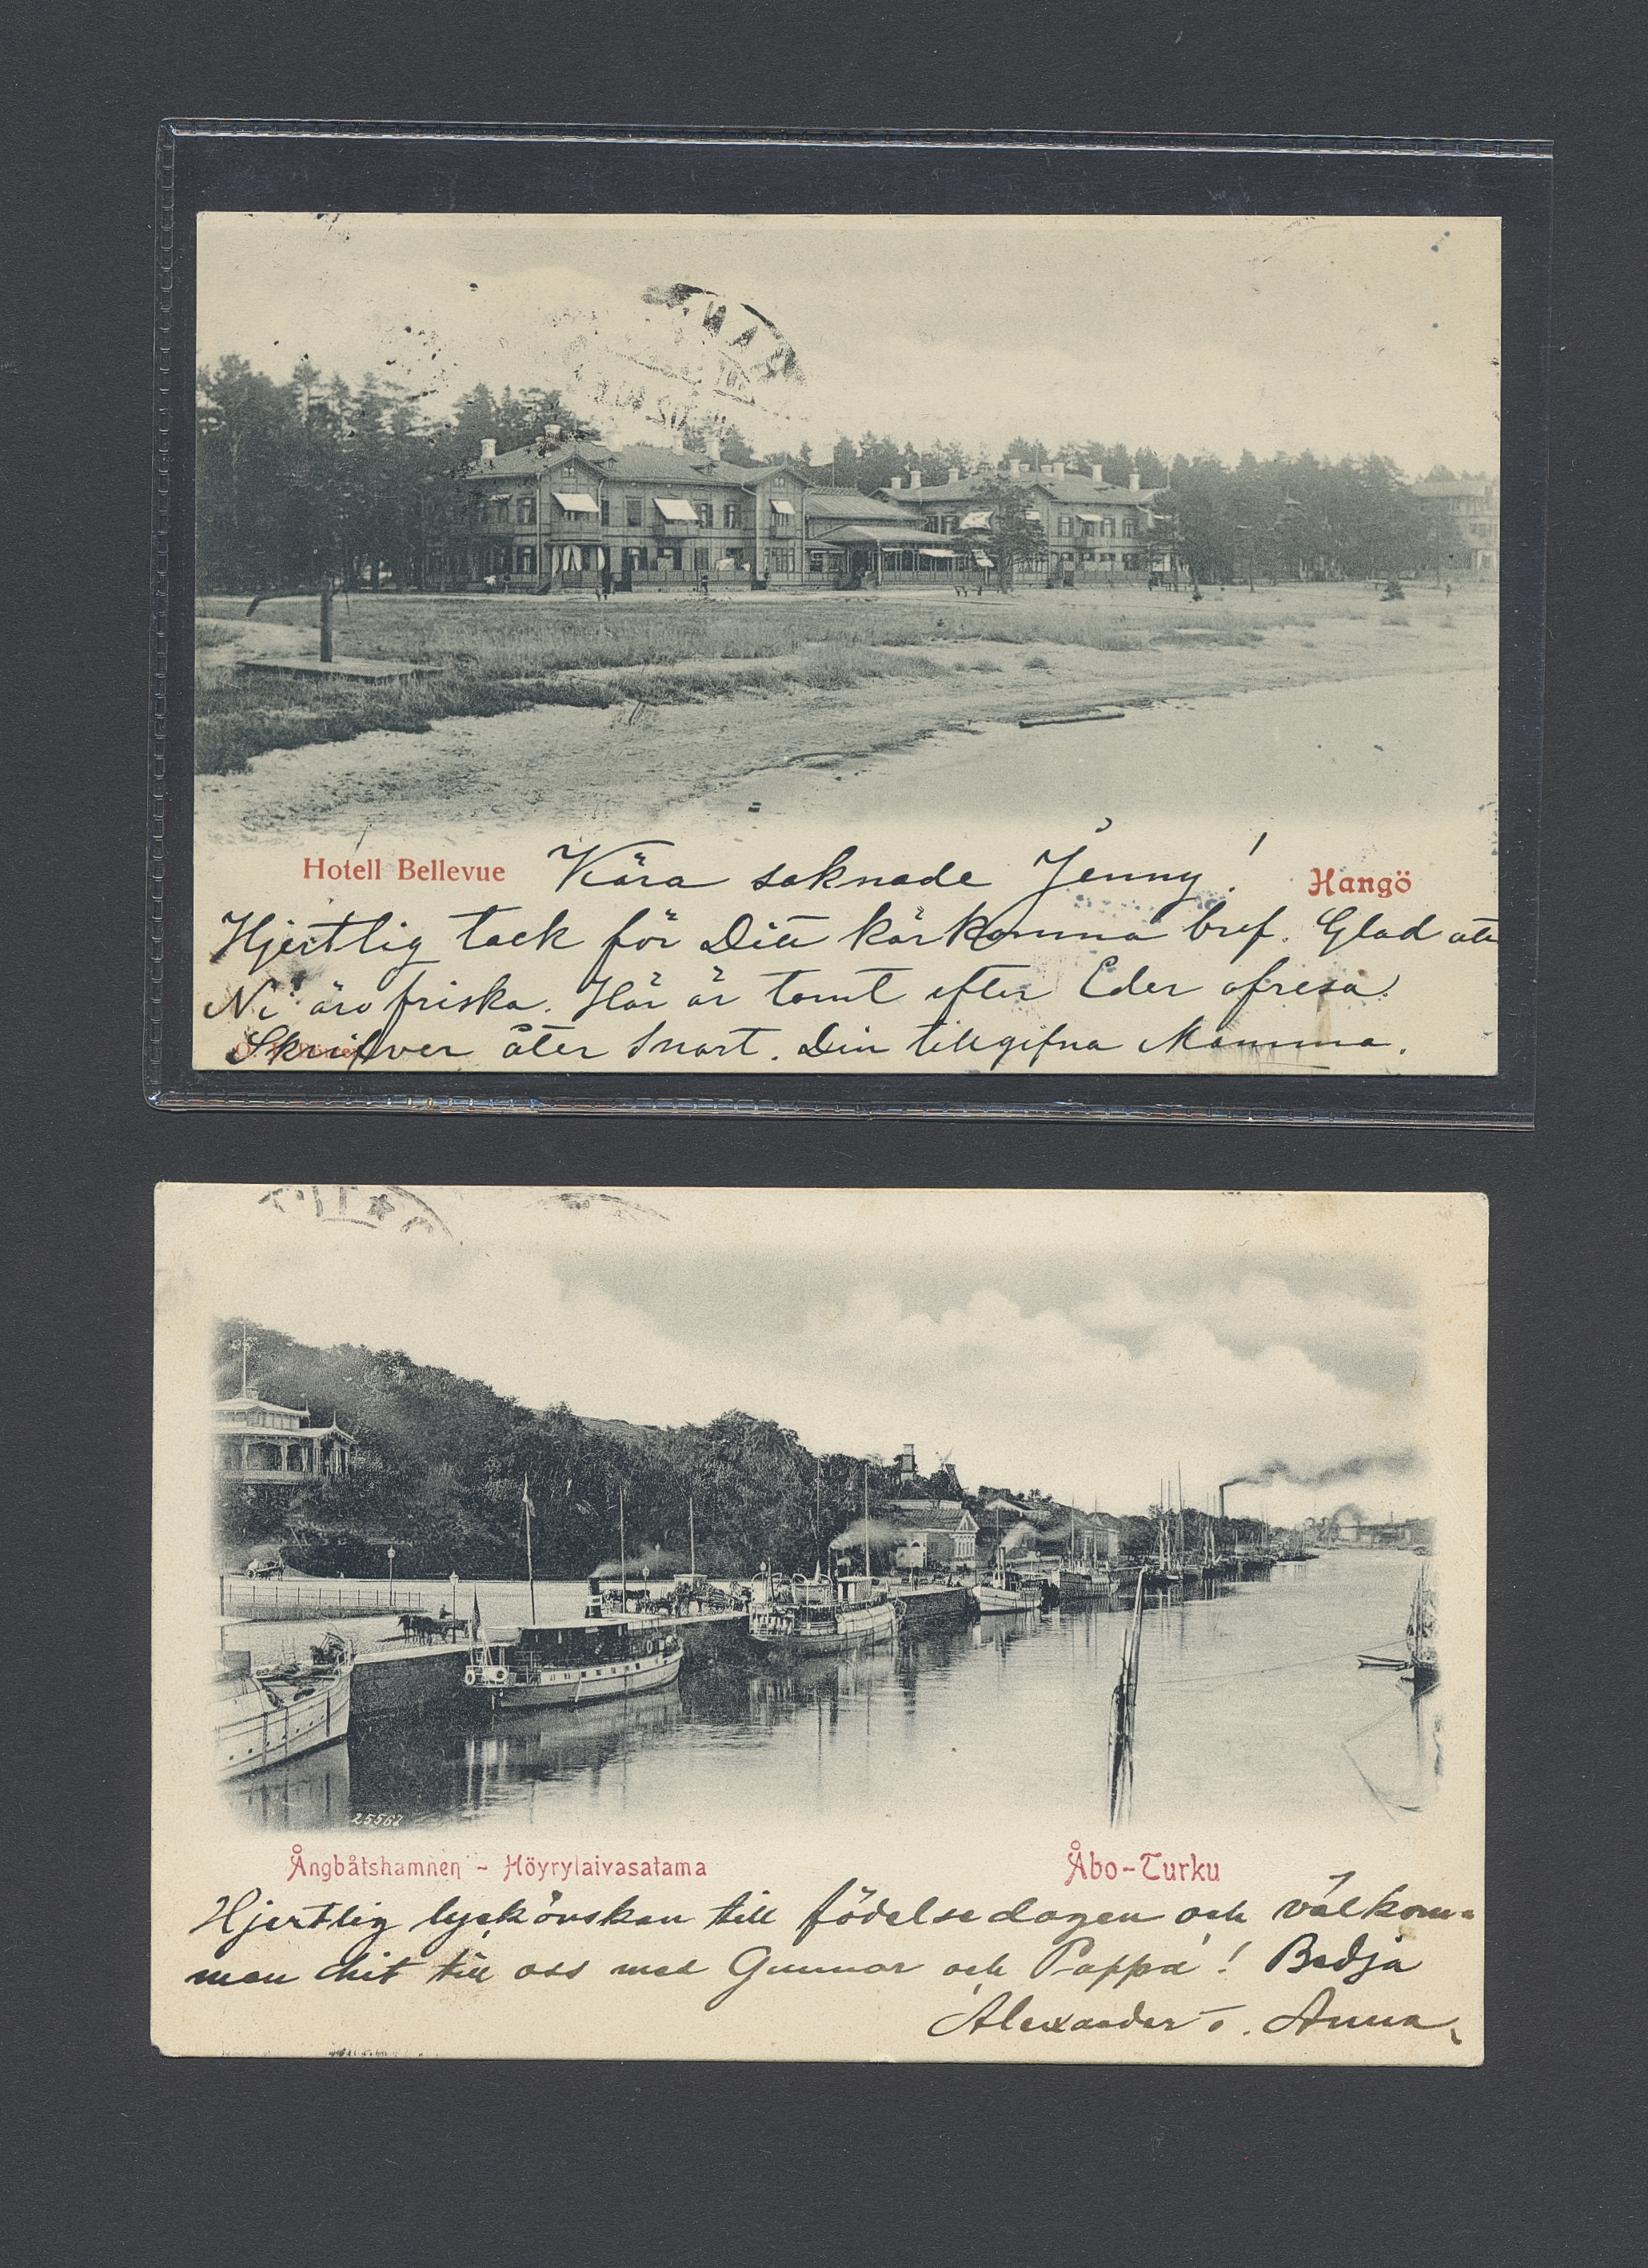 Hotell Bellevue Kära saknade Jenny! Hangö
Hjertlig tack för Ditt kärkomna bref. Glad att
Ni äro friska. Här är tomt efter Eder afresa.
Skrifver åter snart. Din tillgifna Mamma.
25567
Ångbåtshamnen - Höyrylaivasatama Åbo-Turku
Hjertlig lyckönskan till födelsedagen och välkom-
men hit till oss med Gunnar och Pappa! Bedja
Alexander o. Anna.